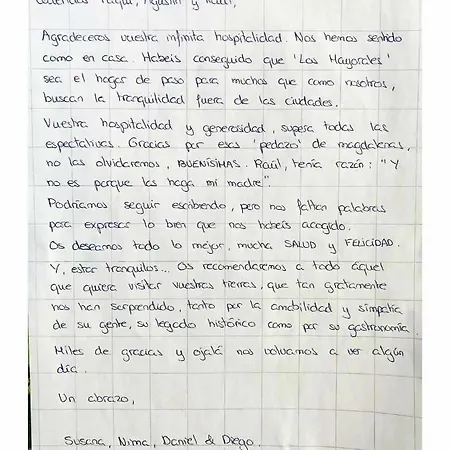 Agustín y Raúl,
Agradeceros vuestra infinita hospitalidad. Nos hemos sentido
como en casa. Habéis conseguido que 'Los Mayorales'
sea el hogar de paso para muchos que como nosotros,
buscan la tranquilidad fuera de las ciudades.
Vuestra hospitalidad y generosidad, supera todas las
espectativas. Gracias por esas 'pedazo' de magdalenas,
no las olvidaremos, BUENÍSIMAS. Raúl, tenía razón: "Y
no es porque las haga mi madre".
Podríamos seguir escribiendo, pero nos faltan palabras
para expresar lo bien que nos habéis acogido.
Os deseamos todo lo mejor, mucha SALUD y FELICIDAD.
Y, estar tranquilos... Os recomendaremos a todo aquel
que quiera visitar vuestras tierras, que tan gratamente
nos han sorprendido, tanto por la amabilidad y simpatía
de su gente, su legado histórico como por su gastronomía.
Miles de gracias y ojalá nos volvamos a ver algún
día.
Un abrazo,
Susana, Nima, Daniel & Diego.